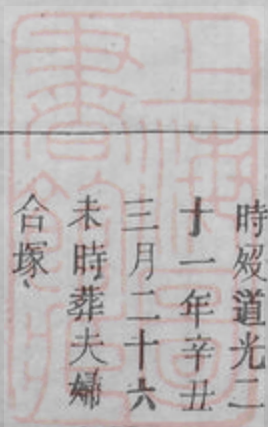 時歿道光二
十一年辛丑
三月二十六
未時葬夫婦
合塚